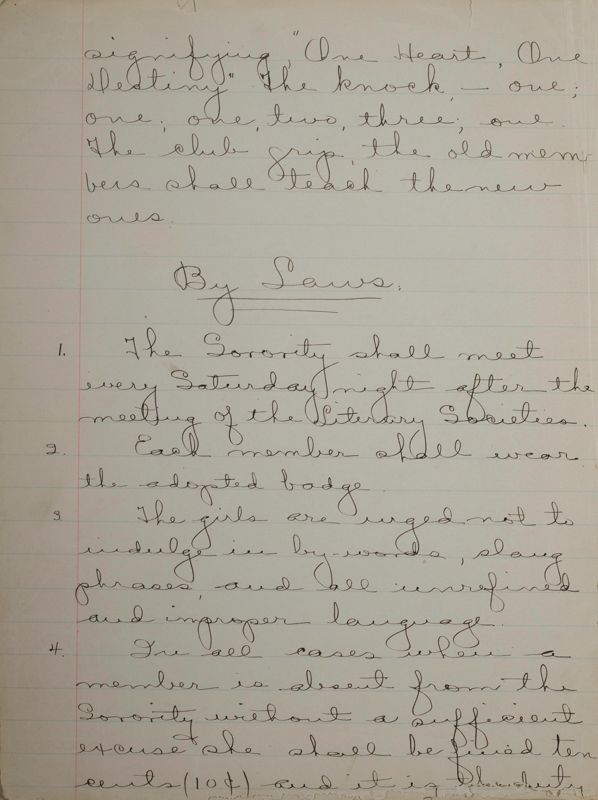 signifying, "One Heart, One
Destiny" The knock, – one;
one; one, two, three; one.
The club grip, the old mem
bers shall teach the new
ones.
By Laws.
1. The Sorority shall meet
every Saturday night after the
meeting of the Literary Societies.
2. Each member shall wear
the adopted badge.
3 The girls are urged not to
indulge in by-words, slang
phrases, and all unrefined
and improper language.
4. In all cases when a
member is absent from the
Sorority without a sufficient
excuse she shall be fined ten
cents (10¢) and it is the duty